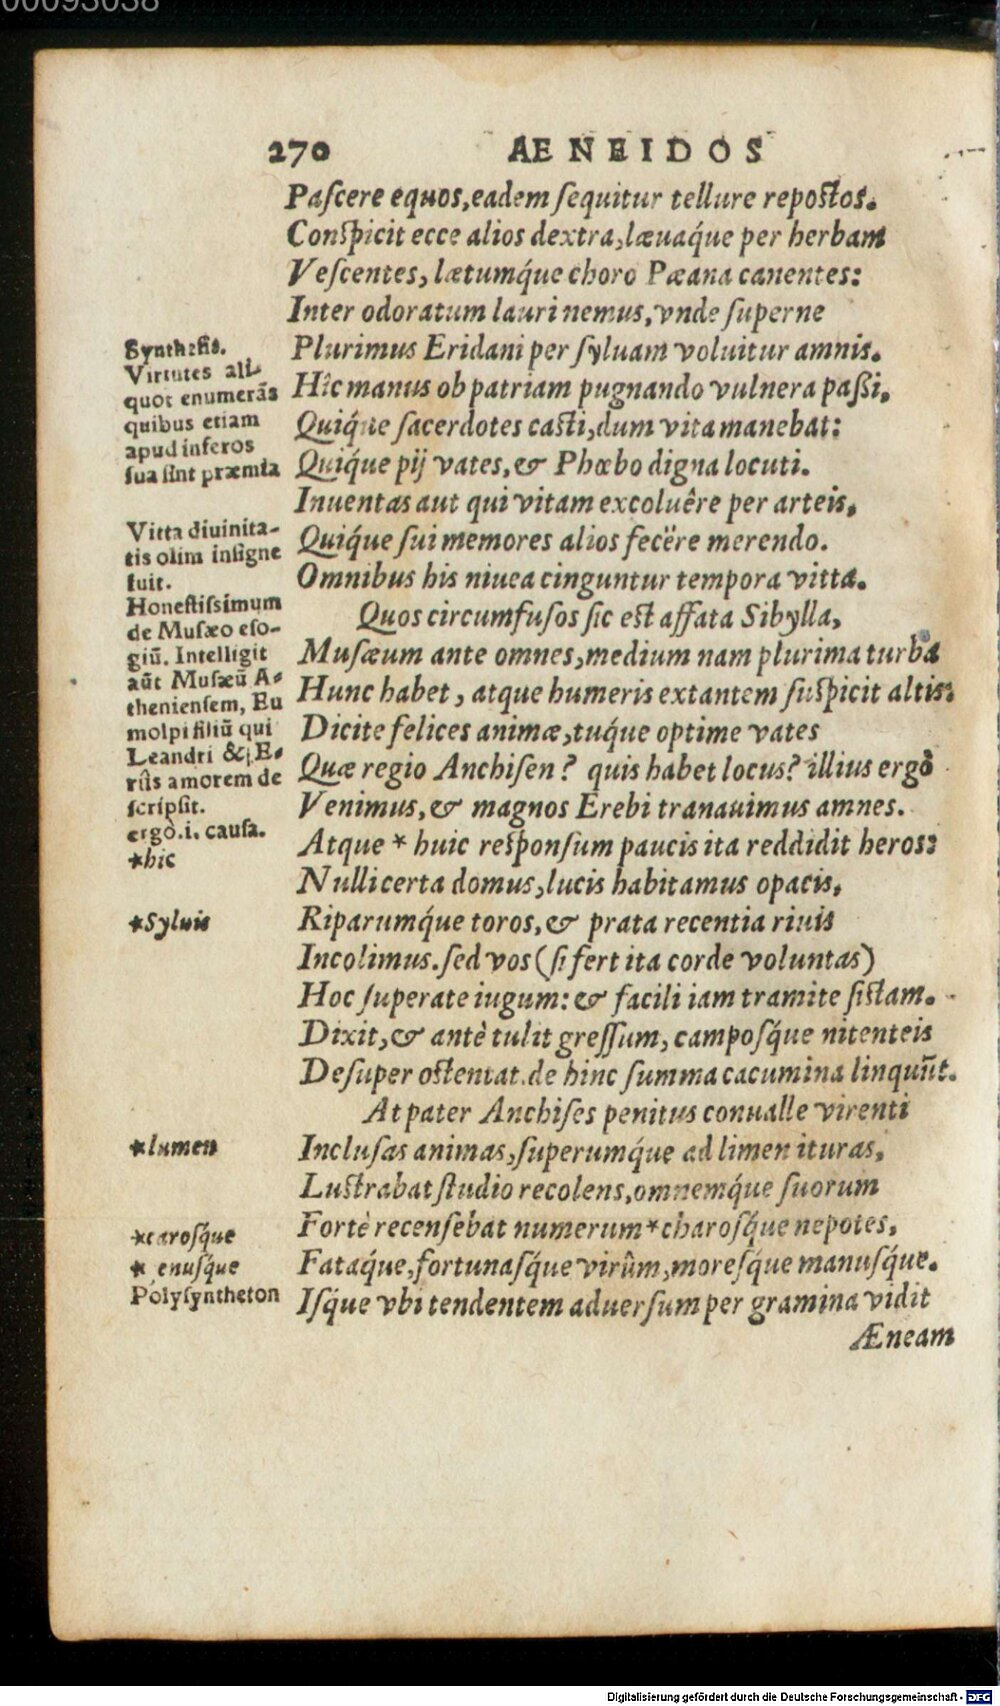 00093038
270 AENEIDOS
Paſcere equos, eadem ſequitur tellure repoſtos.
Conſpicit ecce alios dextra, læuaq́ue per herbam
Veſcentes, lætumq́ue choro Pæana canentes:
Inter odoratum lauri nemus, vnde ſuperne
Plurimus Eridani per ſyluam voluitur amnis.
Hîc manus ob patriam pugnando vulnera paßi,
Quiq́ue ſacerdotes caſti, dum vita manebat:
Quiq́ue pij vates, & Phœbo digna locuti.
Inuentas aut qui vitam excoluêre per arteis,
Quiq́ue ſui memores alios fecëre merendo.
Omnibus his niuea cinguntur tempora vitta.
Quos circumfuſos ſic eſt affata Sibylla,
Muſæum ante omnes, medium nam plurima turba
Hunc habet, atque humeris extantem ſuſpicit altis:
Dicite felices animæ, tuq́ue optime vates
Quæ regio Anchiſen? quis habet locus? illius ergò
Venimus, & magnos Erebi tranauimus amnes.
Atque * huic reſponſum paucis ita reddidit heros:
Nulli certa domus, lucis habitamus opacis,
Riparumq́ue toros, & prata recentia riuis
Incolimus. ſed vos (ſi fert ita corde voluntas)
Hoc ſuperate iugum: & facili iam tramite ſiſtam.
Dixit, & antè tulit greſſum, campoſq́ue nitenteis
Deſuper oſtentat. de hinc ſumma cacumina linquūt.
At pater Anchiſes penitus conualle virenti
Incluſas animas, ſuperumq́ue ad limen ituras,
Luſtrabat ſtudio recolens, omnemq́ue ſuorum
Fortè recenſebat numerum * charoſq́ue nepotes,
Fataq́ue, fortunaſq́ue virûm, moreſq́ue manuſq́ue.
Iſq́ue vbi tendentem aduerſum per gramina vidit
Æneam
Syntheſis.
Virtutes ali-
quot enumerās
quibus etiam
apud inferos
ſua ſint præmia
Vitta diuinita-
tis olim inſigne
fuit.
Honeſtiſsimum
de Muſæo elo-
giū. Intelligit
aūt Muſæū A-
thenienſem, Eu
molpi filiū qui
Leandri & E-
rûs amorem de
ſcripſit.
ergò. i. cauſa.
*hic
*Syluis
*lumen
*caroſq́ue
* enuſq́ue
Polyſyntheton
Digitalisierung gefördert durch die Deutsche Forschungsgemeinschaft - DFG